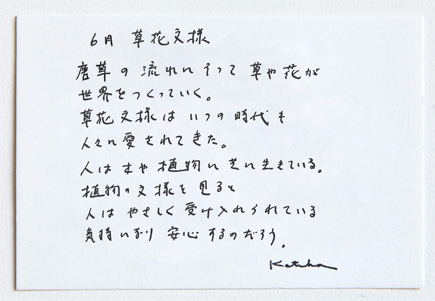 6月 草花文様
唐草の流れにそって草や花が
世界をつくっていく。
草花文様はいつの時代も
人々に愛されてきた。
人は 植物に 生きている。
植物の文様を見ると
人はやさしく受け入れられている
気持になり安心するのだろう。